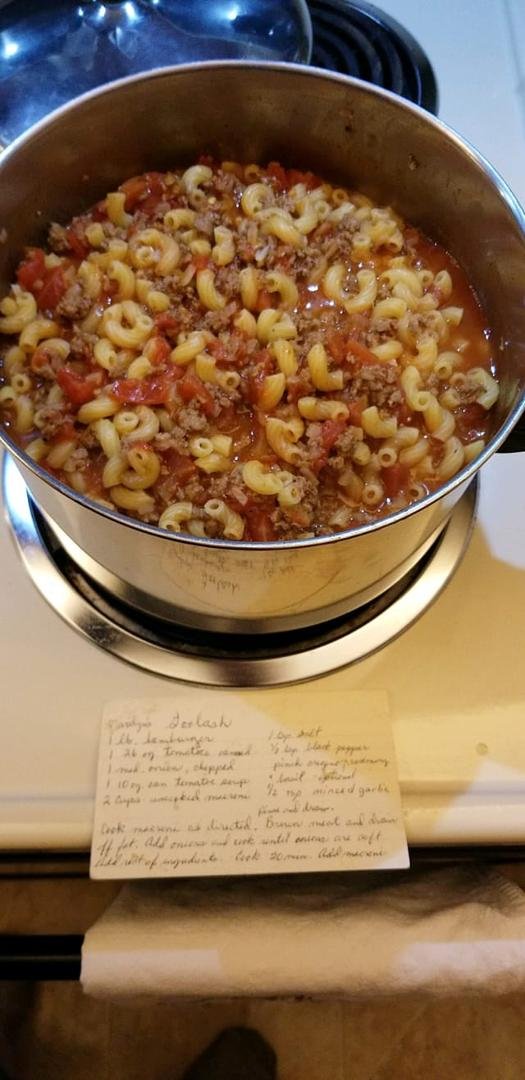 Goolash
1 lb. hamburger
1 26 oz tomatoes canned
1 med. onion, chopped
1 10 oz can tomatoe soup
2 cups uncooked macroni
1 tsp salt
1/2 tsp black pepper
pinch oregno rosemary
" basil optional
1/2 tsp minced garlic
rinse and drain.
Cook macroni as directed. Brown meat and drain
off fat. Add onions and cook until onions are soft.
Add rest of ingredients. Cook 20 min. Add macroni